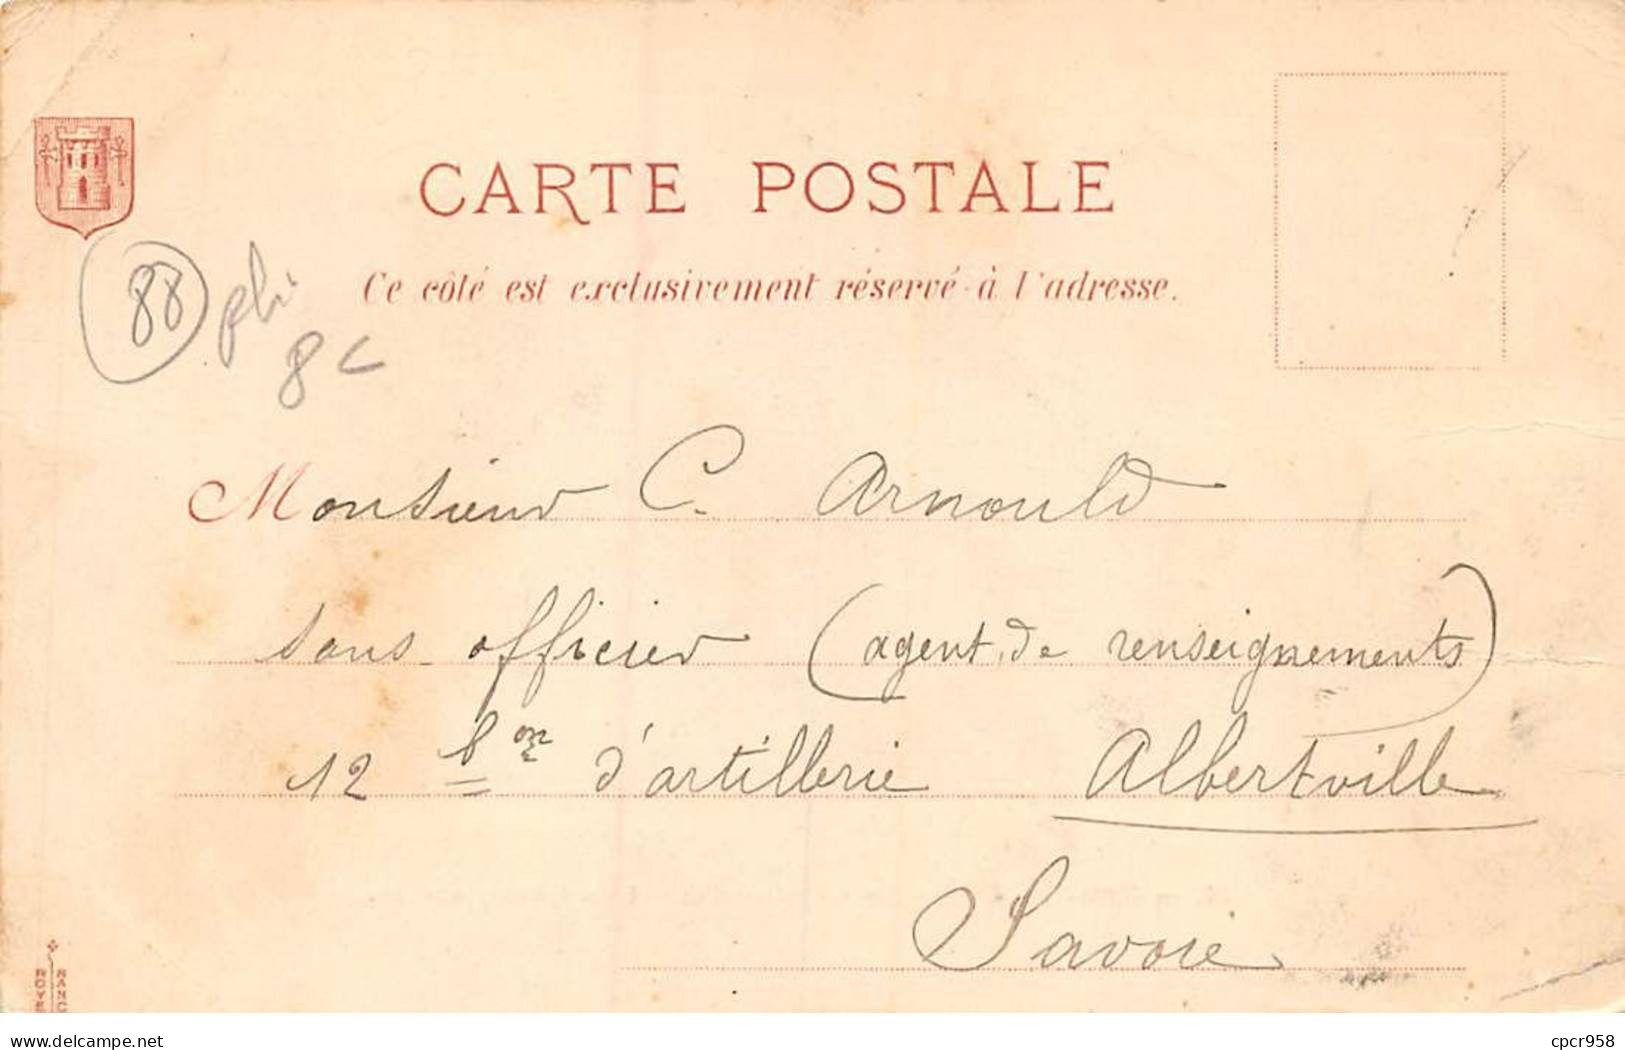 CARTE POSTALE
Ce côté est exclusivement réservé à l'adresse.
88
phi
8
Monsieur C. Arnould
sous officier (agent de renseignements)
12 bon d'artillerie Albertville
Savoie
ROYE
NANC
www.delcampe.net
cpcr958